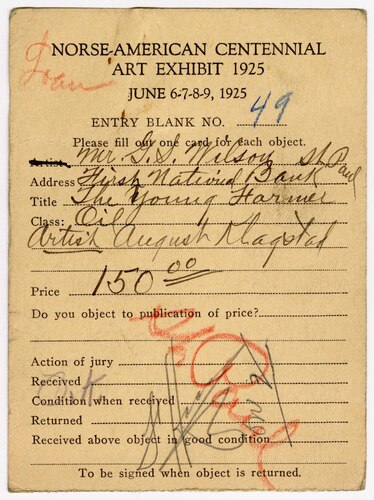 Loan
NORSE-AMERICAN CENTENNIAL
ART EXHIBIT 1925
JUNE 6-7-8-9, 1925
ENTRY BLANK NO. 49
Please fill out one card for each object.
Artist Mr. S. S. Nilson St Paul
Address First National Bank
Title The Young Farmer
Class: Oil
Artist August Klagstad
Price 150 00
Do you object to publication of price?
Action of jury
Received
Condition when received
Returned
Received above object in good condition
To be signed when object is returned.